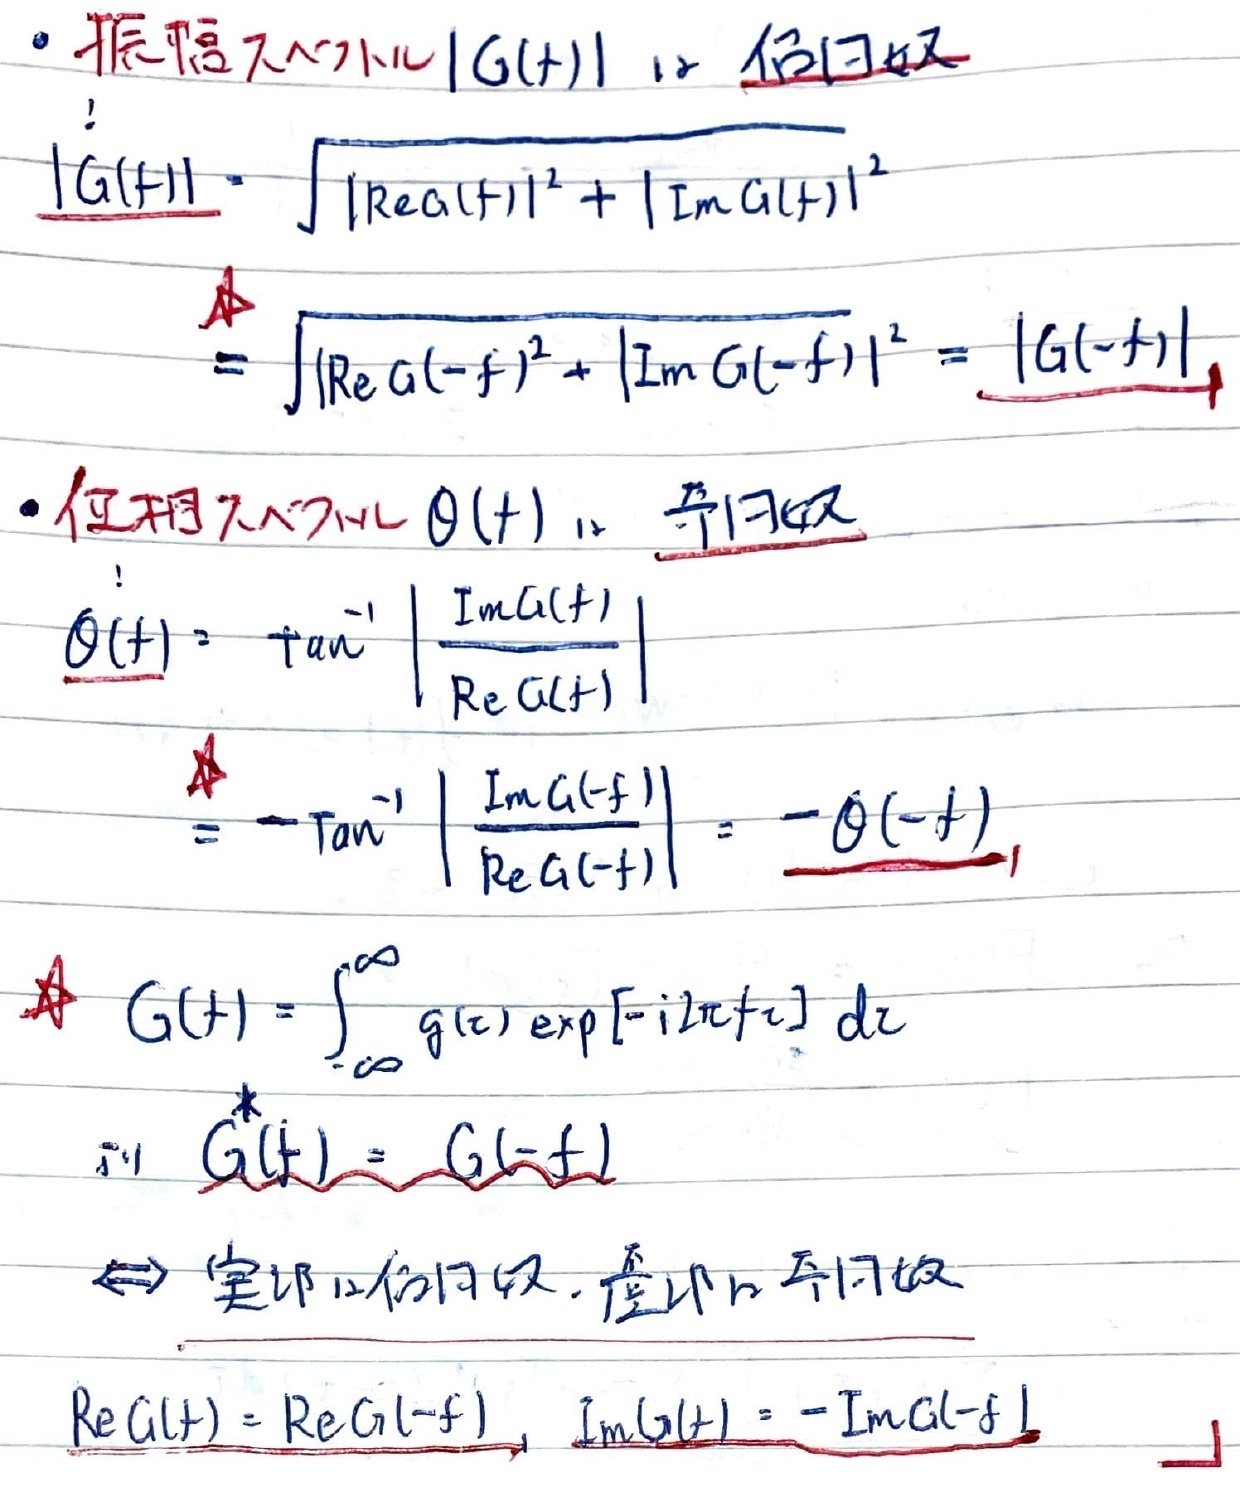 ・振幅スペクトル |G(f)| は 偶関数
!
|G(f)| = √|ReG(f)|² + |Im G(f)|²
☆ = √|Re G(-f)² + |Im G(-f)|² = |G(-f)|
・位相スペクトル θ(f) は 奇関数
!
θ(f) = tan⁻¹ | ImG(f) / Re G(f) |
☆ = - Tan⁻¹ | Im G(-f) / Re G(-f) | = -θ(-f)
☆ G(f) = ∫_{-∞}^{∞} g(τ) exp[-i2πfτ] dτ
より G*(f) = G(-f)
⇔ 実部は偶関数、虚部は奇関数
Re G(f) = Re G(-f), Im G(f) = -Im G(-f)